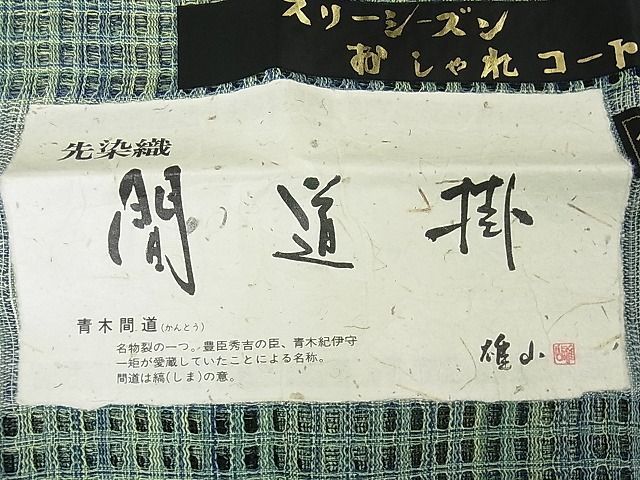 スリーシーズン
おしゃれコート
先染織
間道掛
青木間道(かんとう)
名物裂の一つ。豊臣秀吉の臣、青木紀伊守
一矩が愛蔵していたことによる名称。
間道は縞(しま)の意。
雄山